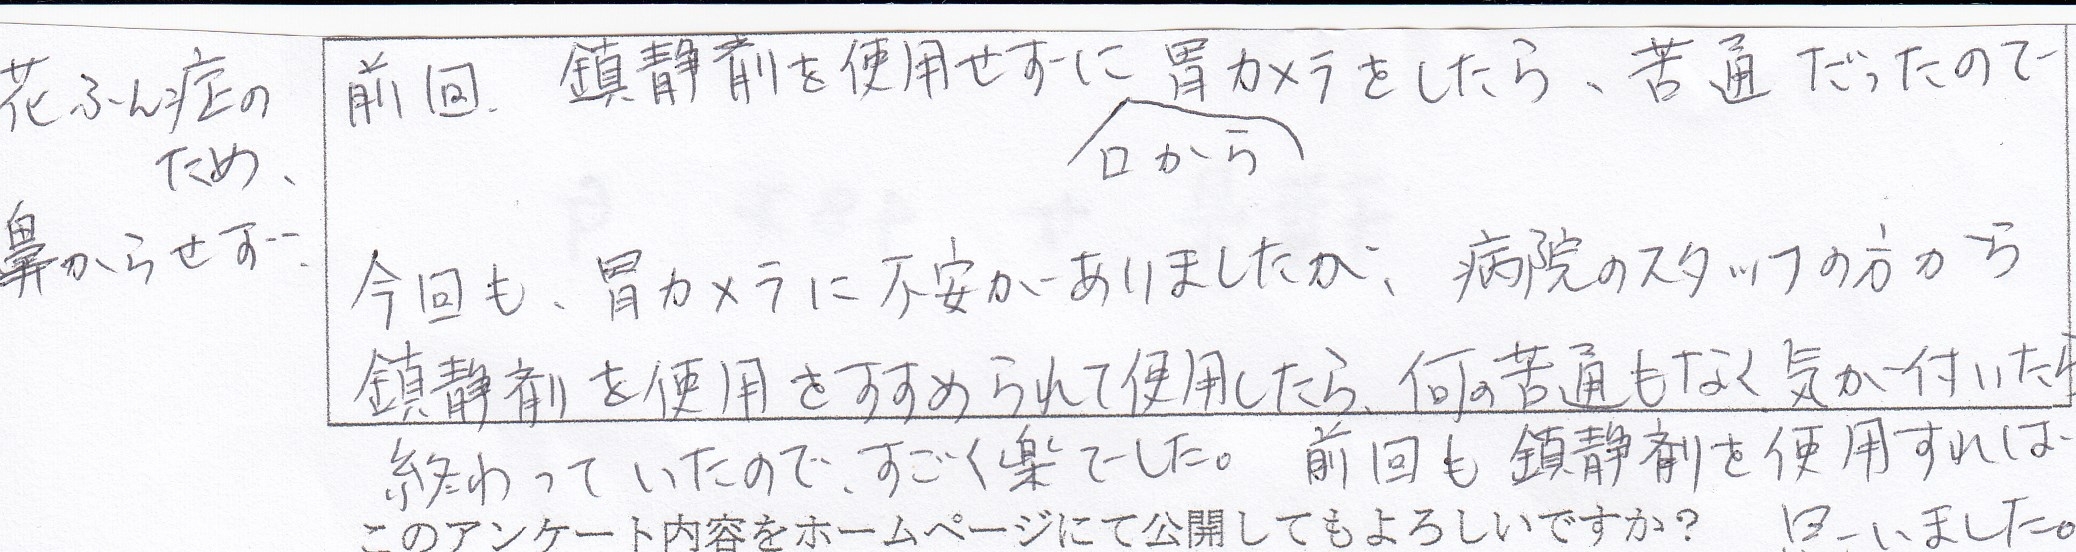 花ふん症の
ため、
鼻からせず…
前回、鎮静剤を使用せずに胃カメラをしたら、苦通だったので
口から
今回も、胃カメラに不安がありましたが、病院のスタッフの方から
鎮静剤を使用をすすめられて使用したら、何の苦通もなく気が付いたら
終わっていたので、すごく楽でした。前回も鎮静剤を使用すれば
このアンケート内容をホームページにて公開してもよろしいですか？
思いました。